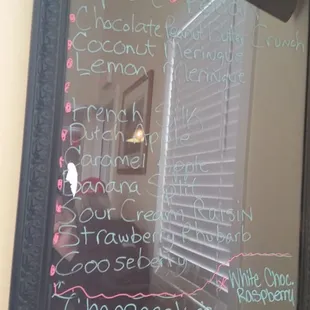 Chocolate Peanut Butter Crunch
Coconut Meringue
Lemon Meringue
French Silk
Dutch Apple
Caramel Apple
Banana Split
Sour Cream Raisin
Strawberry Rhubarb
Gooseberry
White Choc.
Raspberry